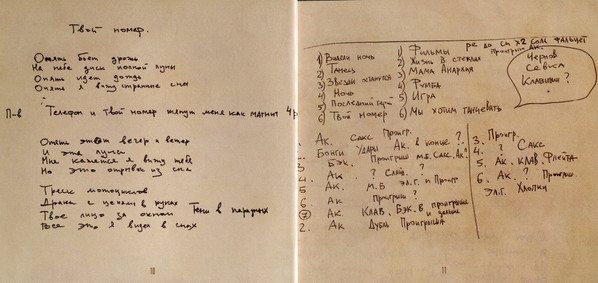 Твой номер.
Опять бьет дрожь
На небе диск полной луны
Опять идет дождь
Опять я вижу странные сны
П-в Телефон и твой номер тянут меня как магнит 4р.
Опять этот вечер и ветер
И эта луна
Мне кажется я вижу тебя
Но это отрывок из сна
Треск мотоциклов
Драка с цепями в руках
Твое лицо за окном Тени в парадных
Все это я видел в снах
10
ре до си х2 соль фальцет
проигрыш Ак.
1) Видели ночь
2) Танец
3) Звезды останутся
4) Ночь
5) Последний герой
6) Твой номер
1) Фильмы
2) Жизнь в стеклах
3) Мама Анархия
4) Румба
5) Игра
6) Мы хотим танцевать
Чернов
Савка
Клавиши ?
1. Ак. Сакс Проигр. ?
Бонги Удары Ак. в конце ?
Бэк. Проигрыш М.Б. Сакс. Ак.
4. Ак ? Слайд. ?
5 Ак. М.Б Эл. Г. и
6 Проигрыш ?
Ак
7 Ак. Клав. Бэк. В проигрыше
и дальше
2. Ак Дубль Проигрыша
3. Проигр.
4. ? Сакс
5. Ак. Клав Флейта
6. Ак. ? Проигрыш
Эл. Г. Хлопки
11